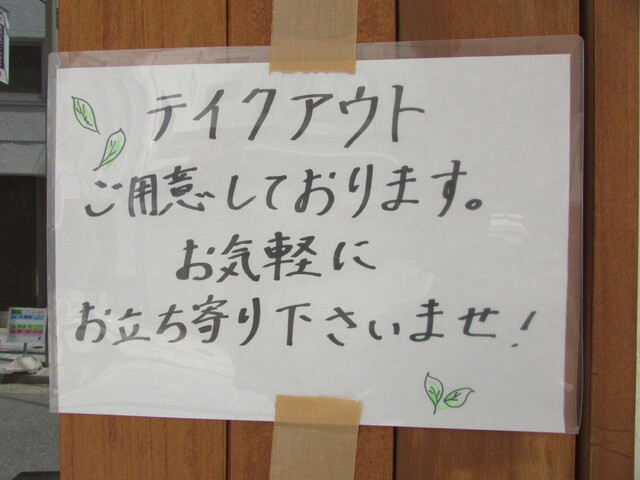 テイクアウト
ご用意しております。
お気軽に
お立ち寄り下さいませ!